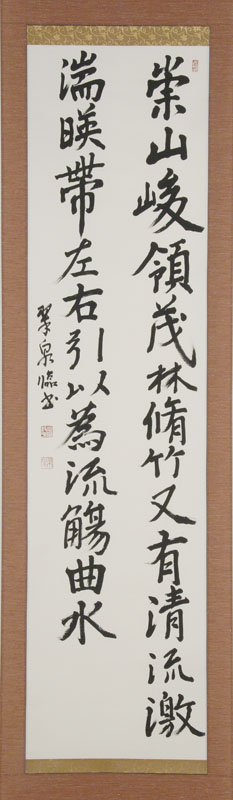 崇山峻領茂林脩竹又有清流激
湍暎帶左右引以為流觴曲水
翠泉臨書